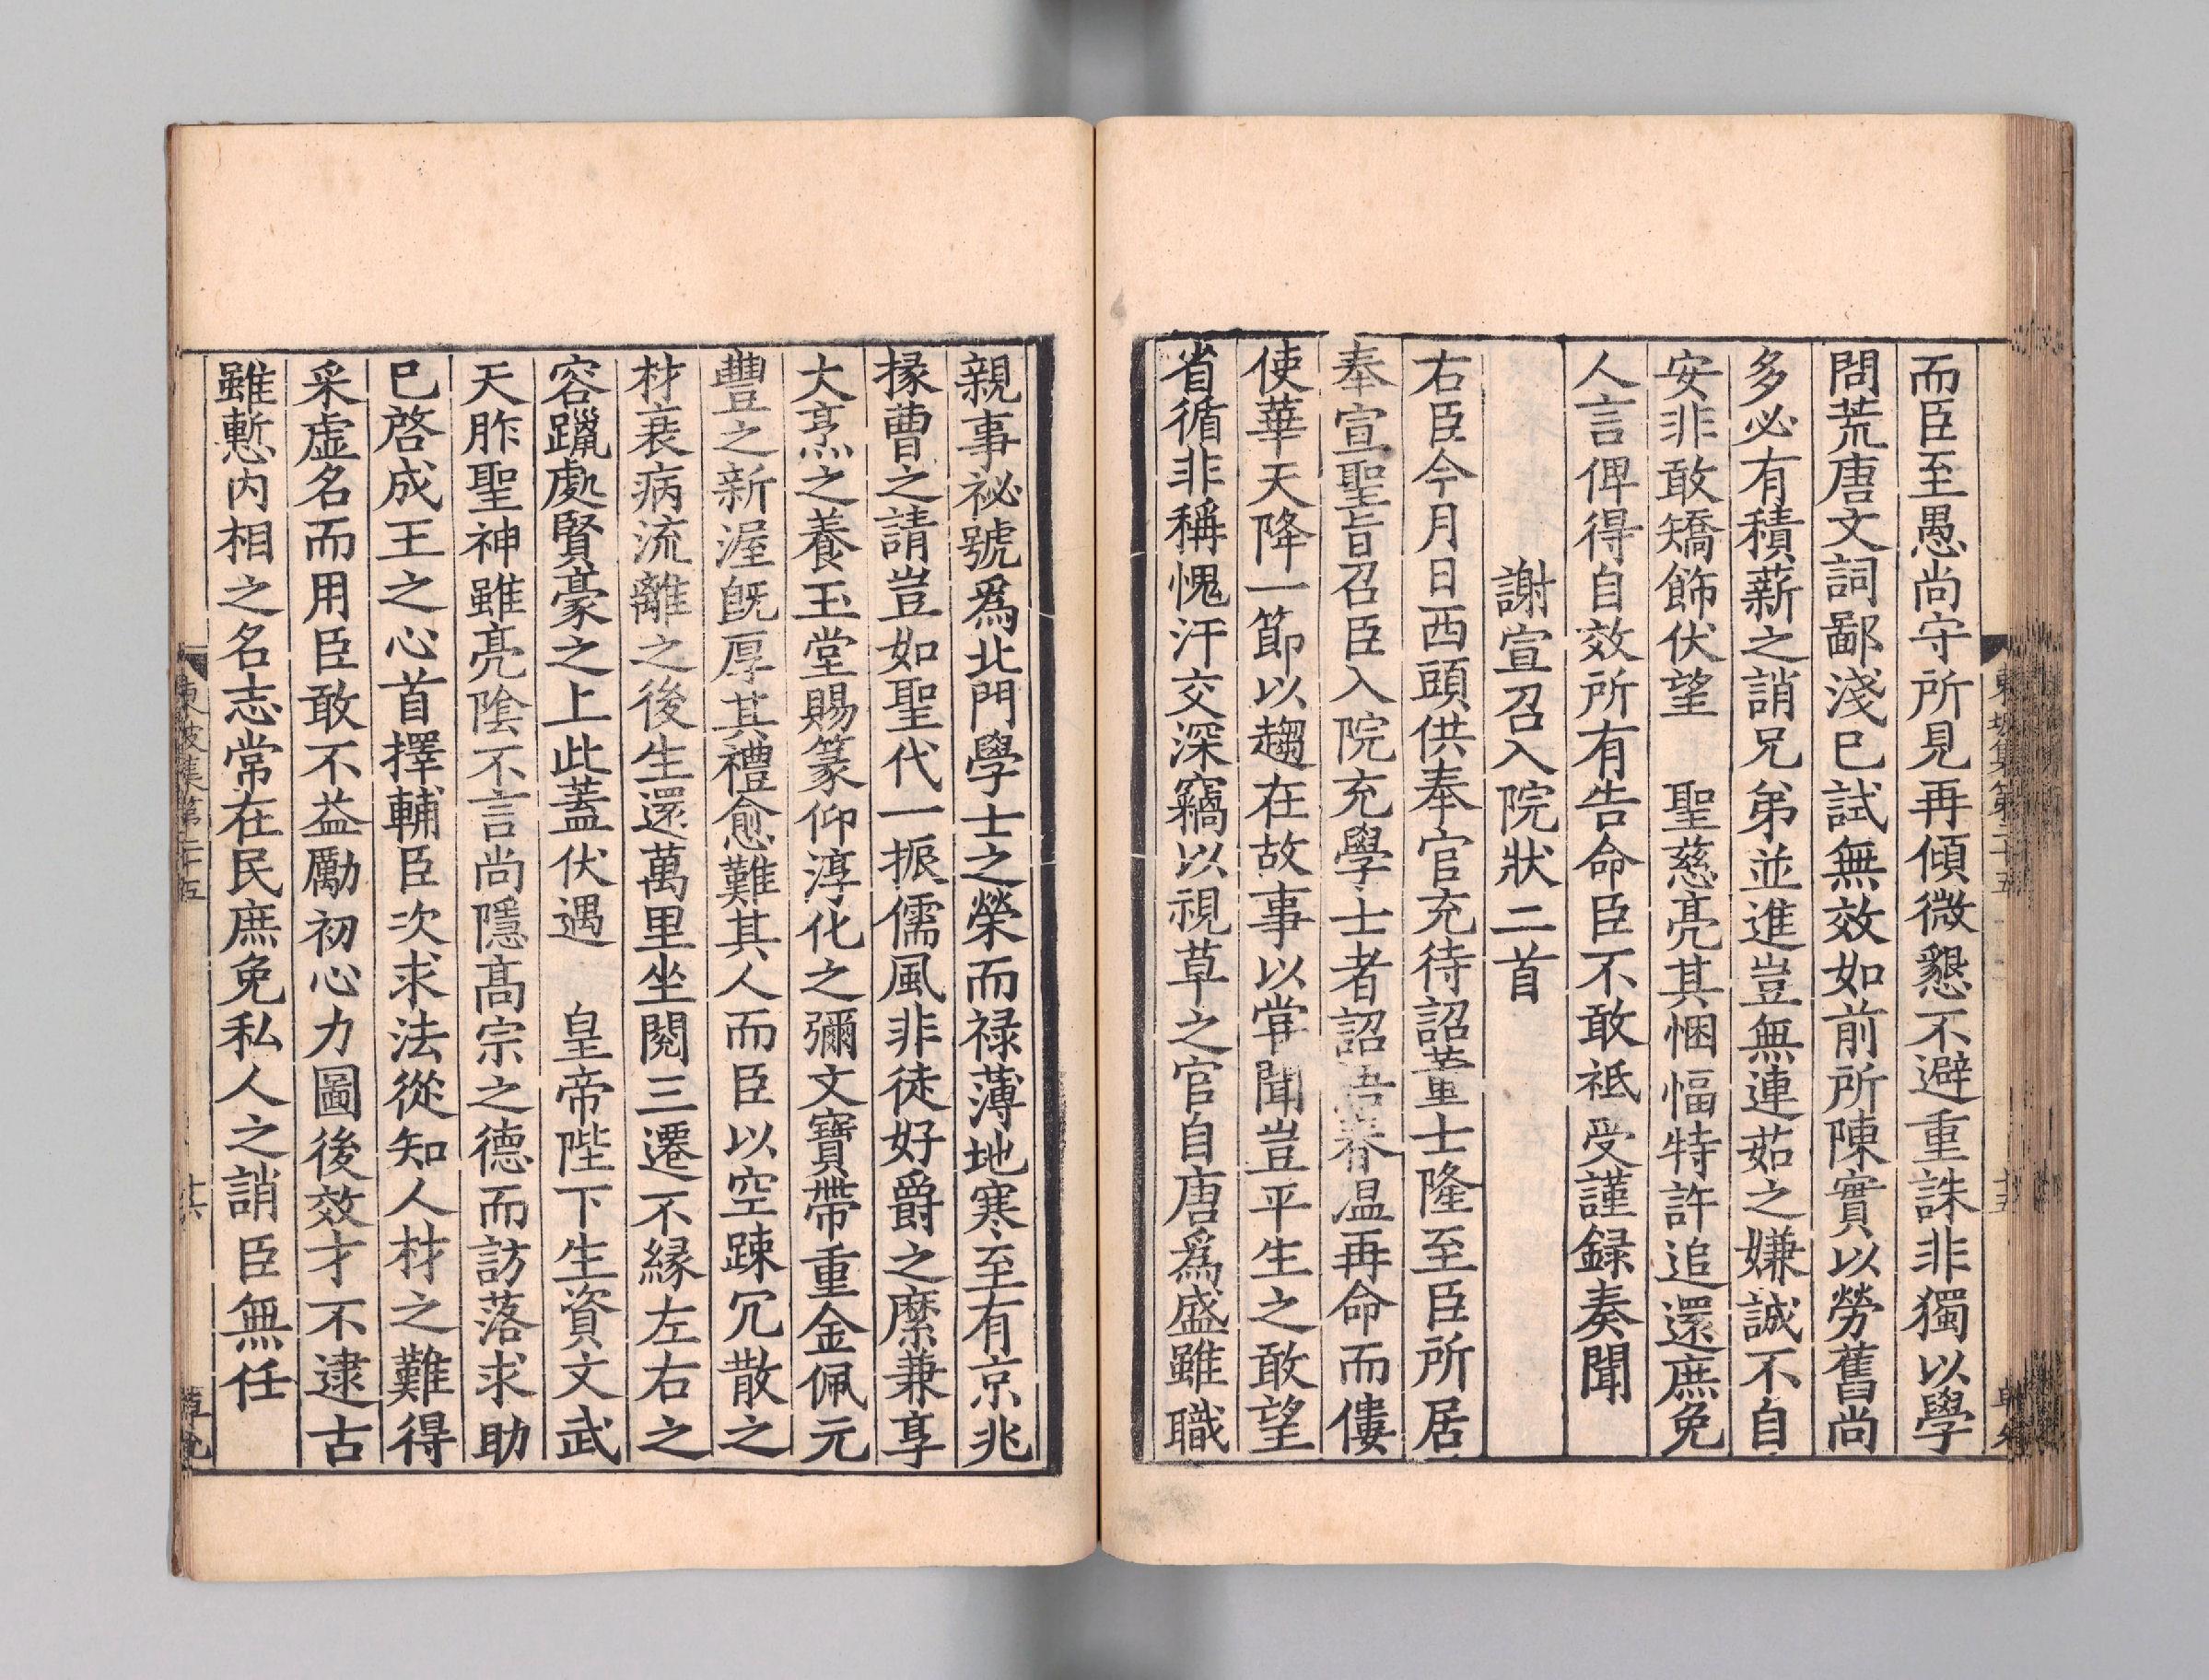 而臣至愚尚守所見再傾微懇不避重誅非獨以學
問荒唐文詞鄙淺已試無效如前所陳實以勞舊尚
多必有積薪之誚兄弟並進豈無連茹之嫌誠不自
安非敢矯飾伏望　聖慈亮其悃愊特許追還庶免
人言俾得自效所有告命臣不敢祗受謹録奏聞
謝宣召入院狀二首
右臣今月日西頭供奉官充待詔董士隆至臣所居
奉宣聖旨召臣入院充學士者詔語春温再命而僂
使華天降一節以趨在故事以嘗聞豈平生之敢望
省循非稱愧汗交深竊以視草之官自唐爲盛雖職
東坡集第二十五
十五
親事祕號爲北門學士之榮而禄薄地寒至有京兆
掾曹之請豈如聖代一振儒風非徒好爵之縻兼享
大烹之養玉堂賜篆仰淳化之彌文寶帶重金佩元
豐之新渥旣厚其禮愈難其人而臣以空踈冗散之
材衰病流離之後生還萬里坐閱三遷不縁左右之
容躐處賢豪之上此蓋伏遇　皇帝陛下生資文武
天胙聖神雖亮隂不言尚隱髙宗之德而訪落求助
已啓成王之心首擇輔臣次求法從知人材之難得
采虚名而用臣敢不益勵初心力圖後效才不逮古
雖慙内相之名志常在民庶免私人之誚臣無任
東坡集第二十五
十六